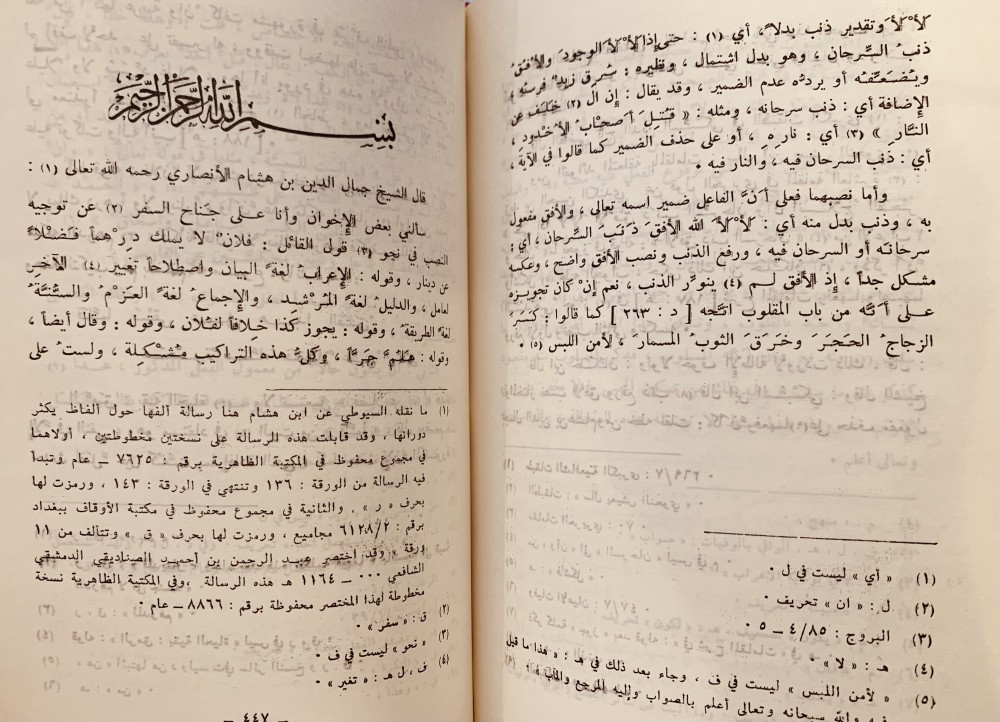 لألأ وتقدير ذنب بدلاً، أي (١) : حتى إذا لألأ الوجود والأفق
ذنبُ السِّرحان ، وهو بدل اشتمال ، ونظيره : سُرق زيدٌ فرسُه ،
ويُضَعِّفُه أو يردُّه عدم الضمير ، وقد يقال : إن ال (٢) خَلَفٌ عن
الإضافة أي : ذنب سرحانه ، ومثله : « قُتِلَ أصحابُ الأُخدود ،
النَّارِ » (٣) أي : نارِه ، أو على حذف الضمير كما قالوا في الآية ،
أي : ذنب السرحان فيه ، والنار فيه .
وأما نصبهما فعلى أنَّ الفاعل ضمير اسمه تعالى ، والأفق مفعول
به ، وذنب بدل منه أي : لألأ الله الأفق ذَنَبَ السِّرحان ، أي :
سرحانَه أو السرحان فيه ، ورفع الذنب ونصب الأفق واضح ، وعكسه
مشكل جداً ، إذ الأفق لم (٤) ينوِّر الذنب ، نعم إنْ كان تجويزه
على أنَّه من باب المقلوب اتَّجه [ د : ٢٦٣ ] كما قالوا : كَسَرَ
الزجاجُ الحجَرَ وخَرَقَ الثوبُ المسمارَ ، لأمن اللبس (٥) .
(١) « أي » ليست في ل .
(٢) ل : « ان » تحريف .
(٣) البروج : ٤/٨٥ – ٥ .
(٤) هـ : « لا » .
(٥) « لأمن اللبس » ليست في ف ، وجاء بعد ذلك في هـ : « هذا ما قيل
فيه والله سبحانه وتعالى أعلم بالصواب وإليه المرجع والمآب » .
بسم الله الرحمن الرحيم
قال الشيخ جمال الدين بن هشام الأنصاري رحمه الله تعالى (١) :
سألني بعض الإخوان وأنا على جَناح السفر (٢) عن توجيه
النصب في نحو (٣) قول القائل : فلانٌ لا يملك درهماً فَضْلاً
عن دينار ، وقوله : الإعرابُ لغةً البيان واصطلاحاً تغيير (٤) الآخرِ
لعامل ، والدليلُ لغةً المُرْشِد ، والإجماعُ لغةً العَزْمُ والسُّنَّةُ
لغةً الطريقةُ ، وقوله : يجوز كَذا خِلافاً لفُلان ، وقوله : وقال أيضاً ،
وقوله : هَلُمَّ جَرّاً ، وكلُّ هذه التراكيب مُشْكِلة ، ولستُ على
(١) ما نقله السيوطي عن ابن هشام هنا رسالة ألفها حول ألفاظ يكثر
دورانها ، وقد قابلت هذه الرسالة على نسختين مخطوطتين ، أولاهما
في مجموع محفوظ في المكتبة الظاهرية برقم : ٧٦٢٥ – عام وتبدأ
فيه الرسالة من الورقة : ١٣٦ وتنتهي في الورقة : ١٤٣ ، ورمزت لها
بحرف « ر » . والثانية في مجموع محفوظ في مكتبة الأوقاف ببغداد
برقم : ٦١٢٨/٢ مجاميع ، ورمزت لها بحرف « ق » وتتألف من ١١
ورقة « وقد اختصر عبد الرحمن بن أحمد الصناديقي الدمشقي
الشافعي ٠٠٠ – ١١٦٤ هـ هذه الرسالة ، وفي المكتبة الظاهرية نسخة
مخطوطة لهذا المختصر محفوظة برقم : ٨٨٦٦ – عام .
(٢) ق : « سفر » .
(٣) « نحو » ليست في ف .
(٤) ف ، ل هـ : « تغير » .
– ٤٤٧ –